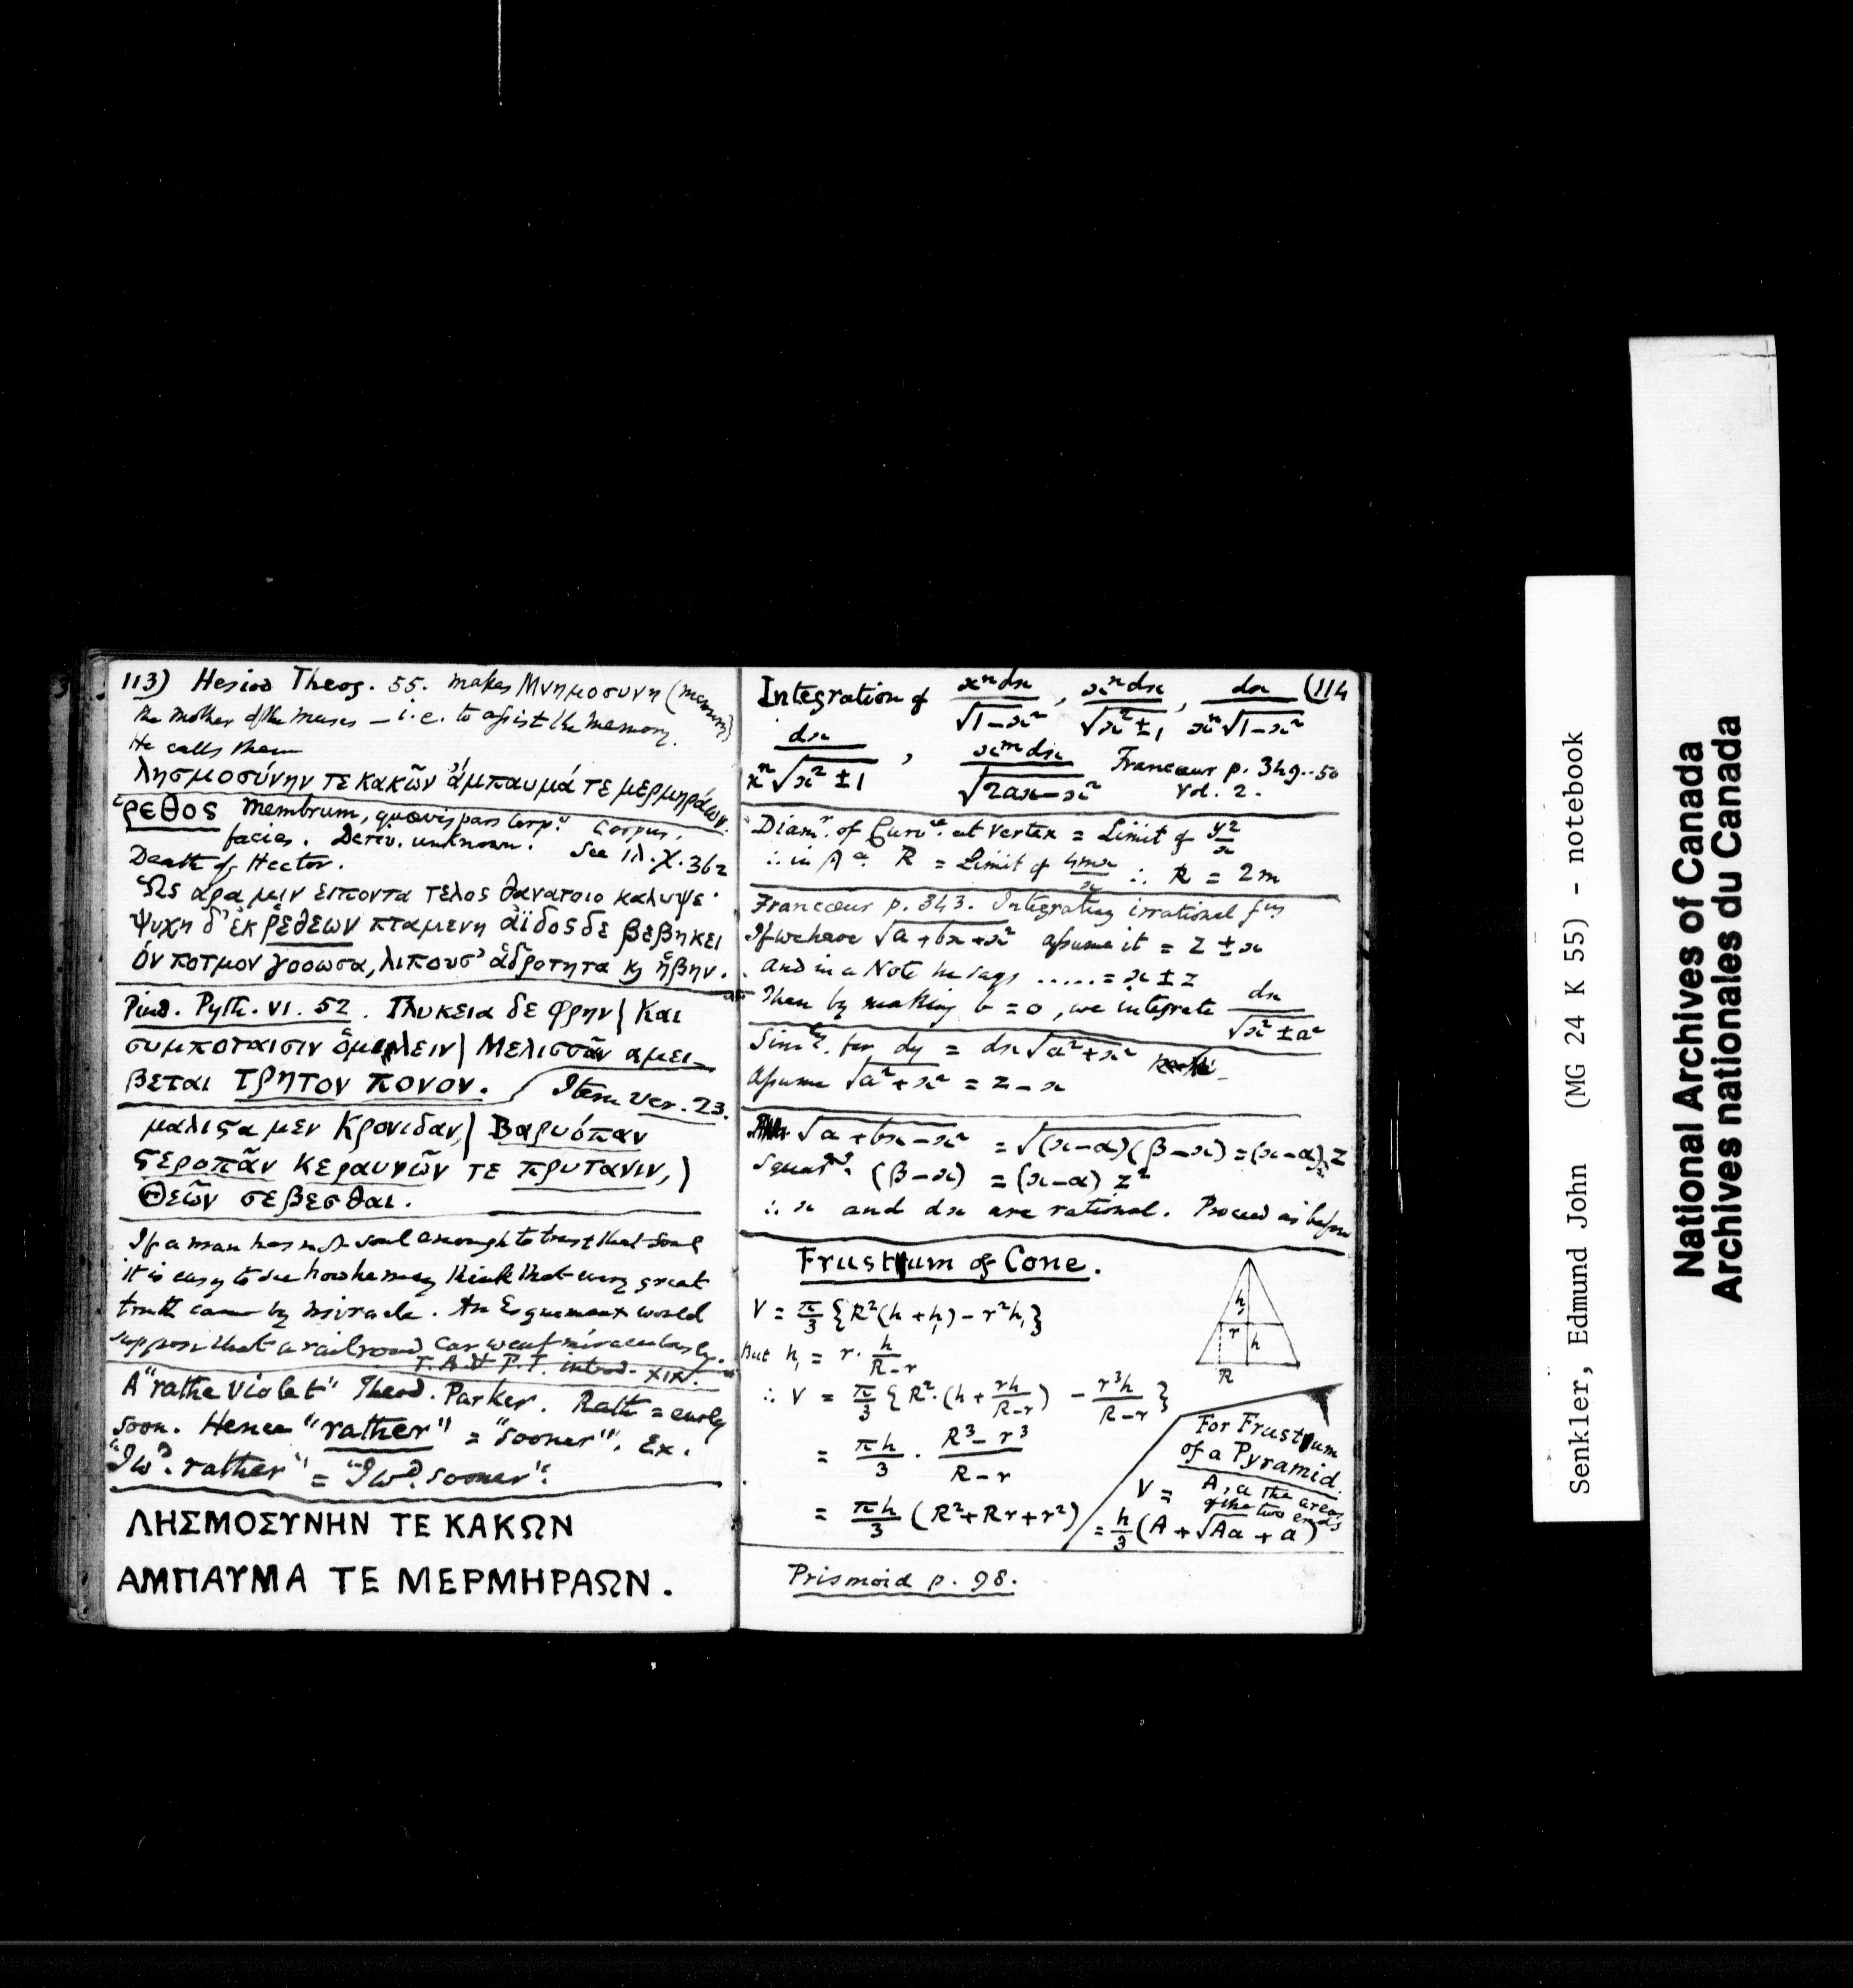 113) Hesiod Theog. 55. makes Μνημοσυνη (memory)
the mother of the muses — i.e. to assist the memory.
He calls them
λησμοσύνην τε κακῶν ἄμπαυμά τε μερμηράων.
ῥεθος membrum, quavis pars corp.ˢ Corpus.
facies. Deriv. unknown. See Il. Χ. 362
Death of Hector.
Ὣς αρα μιν ειποντα τελος θανατοιο καλυψε·
ψυχη δ' ἐκ ῥεθεων πταμενη ἀϊδοςδε βεβηκει
ὁν ποτμον γοοωσα, λιπουσ' ἁδροτητα ϗ ἥβην.
Pind. Pyth. VI. 52. Γλυκεια δε φρην | Και
συμποταισιν ὁμιλειν | Μελισσᾶν αμει-
βεται τρητον πονον. Item ver. 23.
μαλιϛα μεν Κρονιδαν, | Βαρυόπαν
ϛεροπᾶν κεραυνῶν τε πρυτανιν, |
Θεῶν σεβεσθαι.
If a man has not soul enough to trust that soul
it is easy to see how he may think that every great
truth came by miracle. An Esquemaux would
suppose that a railroad car went miraculously.
T.A. & P.T. introd. XIX.
A "rathe violet" Theod. Parker. Rath = early
soon. Hence "rather" = "sooner". Ex.
"I wᵈ. rather" = "I wᵈ. sooner".
ΛΗΣΜΟΣΥΝΗΝ ΤΕ ΚΑΚΩΝ
ΑΜΠΑΥΜΑ ΤΕ ΜΕΡΜΗΡΑΩΝ.
(114
Integration of xⁿdx/√(1-x²), xⁿdx/√(x²±1), dx/xⁿ√(1-x²)
dx/xⁿ√(x²±1), xᵐdx/√(2ax-x²) Francœur p. 349..50
Vol. 2.
Diamʳ. of Curvʳᵉ. at Vertex = Limit of y²/x
∴ in R = Limit of 4mx/x ∴ R = 2m
Francœur p. 343. Integrating irrational fⁿˢ
If we have √(a+bx+x²) assume it = z ± x
And in a Note he says ...... = x ± z
Then by making b = 0, we integrate dx/√(x²±a²)
Simˡʸ. for dy = dx√(a²+x²)
assume √(a²+x²) = z - x
√(a+bx-x²) = √((x-α)(β-x)) = (x-α)z
Squarᵍ. (β-x) = (x-α) z²
∴ x and dx are rational. Proceed as before
Frustrum of Cone.
V = π/3 {R²(h+h₁) - r²h₁}
But h₁ = r. h/(R-r)
∴ V = π/3 {R².(h + rh/(R-r)) - r³h/(R-r)}
= πh/3 . (R³-r³)/(R-r)
= πh/3 (R²+Rr+r²)
h₁
r
h
R
For Frustrum
of a Pyramid.
V = A, a the areas
of the two ends
= h/3 (A + √Aa + a)
Prismoid p. 98.
Senkler, Edmund John (MG 24 K 55) - notebook
National Archives of Canada
Archives nationales du Canada